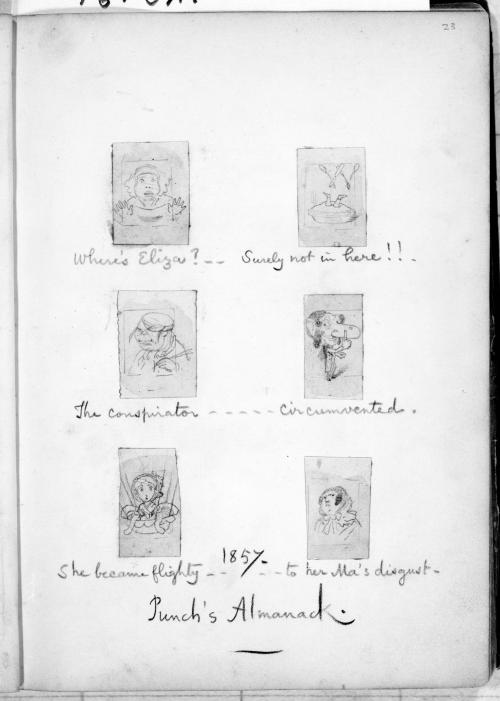 23
Where's Eliza? -- Surely not in here!! -
The conspirator ----- circumvented.
She became flighty -- 1857. -- to her Ma's disgust -
Punch's Almanack.